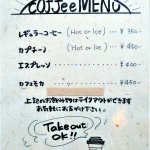 COffee MENU
レギュラーコーヒー (Hot or Ice) ... ¥350-
カプチーノ (Hot or Ice) ... ¥450-
エスプレッソ ... ¥400-
カフェモカ ... ¥450-
上記のお飲み物はテイクアウトができます
お気軽にお声がけ下さい。
Take out
OK!!